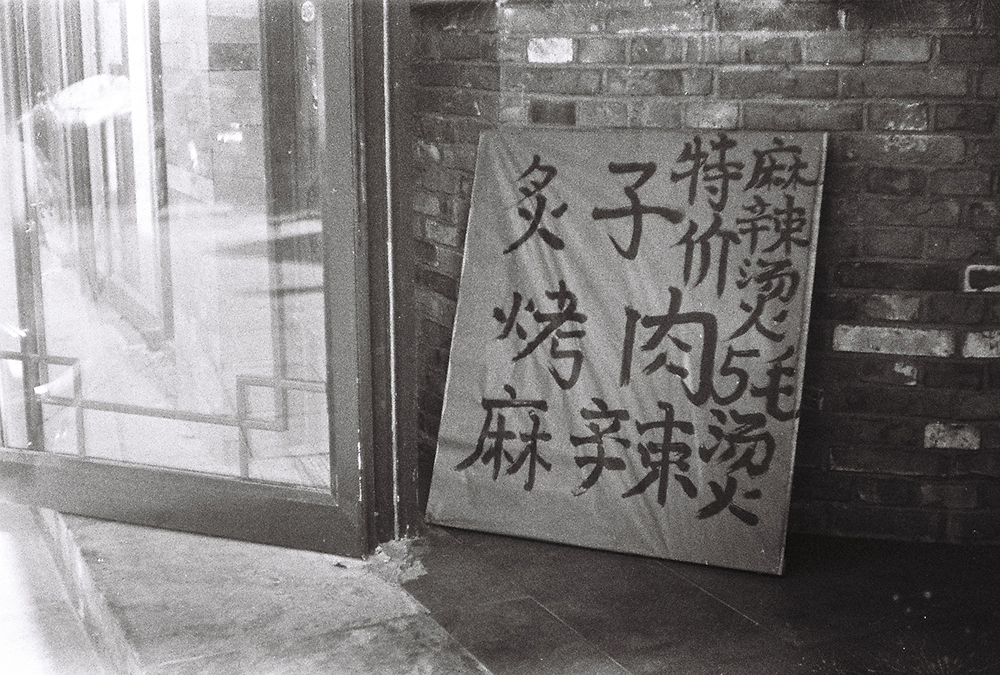 炙子
烤肉
麻辣烫
特价
麻辣烫5毛